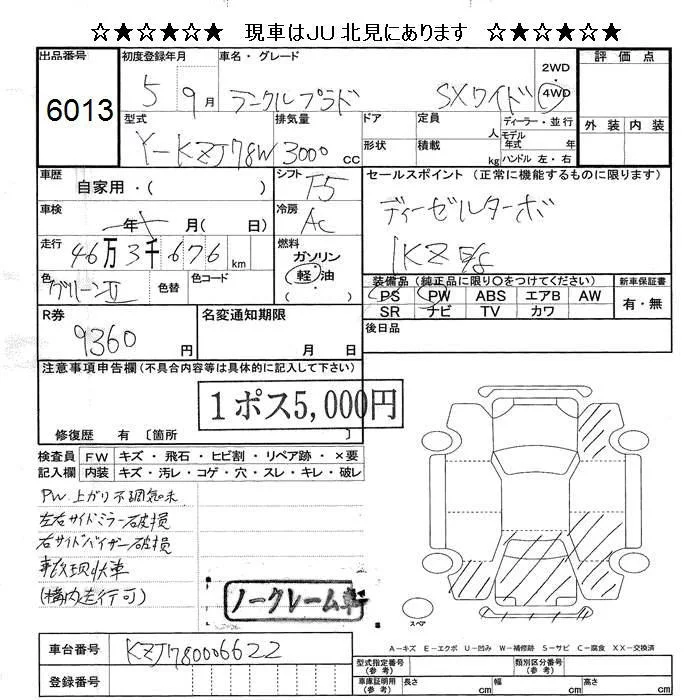 ☆★☆★☆★ 現車はJU北見にあります ☆★☆★☆★
出品番号 初度登録年月 車名・グレード 評価点
6013 5年 9月 ランクルプラド SXワイド 2WD・4WD
外装 内装
型式 排気量 ドア 定員 ディーラー・並行
Y-KZJ78W 3000cc 人 モデル年式 年
形状 積載 kg ハンドル 左・右
車歴 自家用・( ) シフト F5 セールスポイント (正常に機能するものに限ります)
車検 年 月( 日) 冷房 AC ディーゼルターボ
走行 46万3千676km 燃料 ガソリン・軽油 1KZ E/G
色 グリーンII 色替 色コード
装備品 (純正品に限り○をつけてください) 新車保証書
PS PW ABS エアB AW 有・無
SR ナビ TV カワ
R券 9360円 名変通知期限 月 日 後日品
注意事項申告欄 (不具合内容等は具体的に記入して下さい)
1ポス5,000円
修復歴 有 〔箇所 〕
検査員 FW キズ・飛石・ヒビ割・リペア跡・×要
記入欄 内装 キズ・汚レ・コゲ・穴・スレ・キレ・破レ
PW上がり不調気味
左右サイドミラー破損
右サイドバイザー破損
現状車
(構内走行可)
ノークレーム車
スペア
車台番号 KZJ780006622
A−キズ E−エクボ U−凹み W−補修跡 S−サビ C−腐食 XX−交換済
登録番号
型式指定番号(参考) 類別区分番号(参考)
車庫証明用(参考) 長さ cm 幅 cm 高さ cm